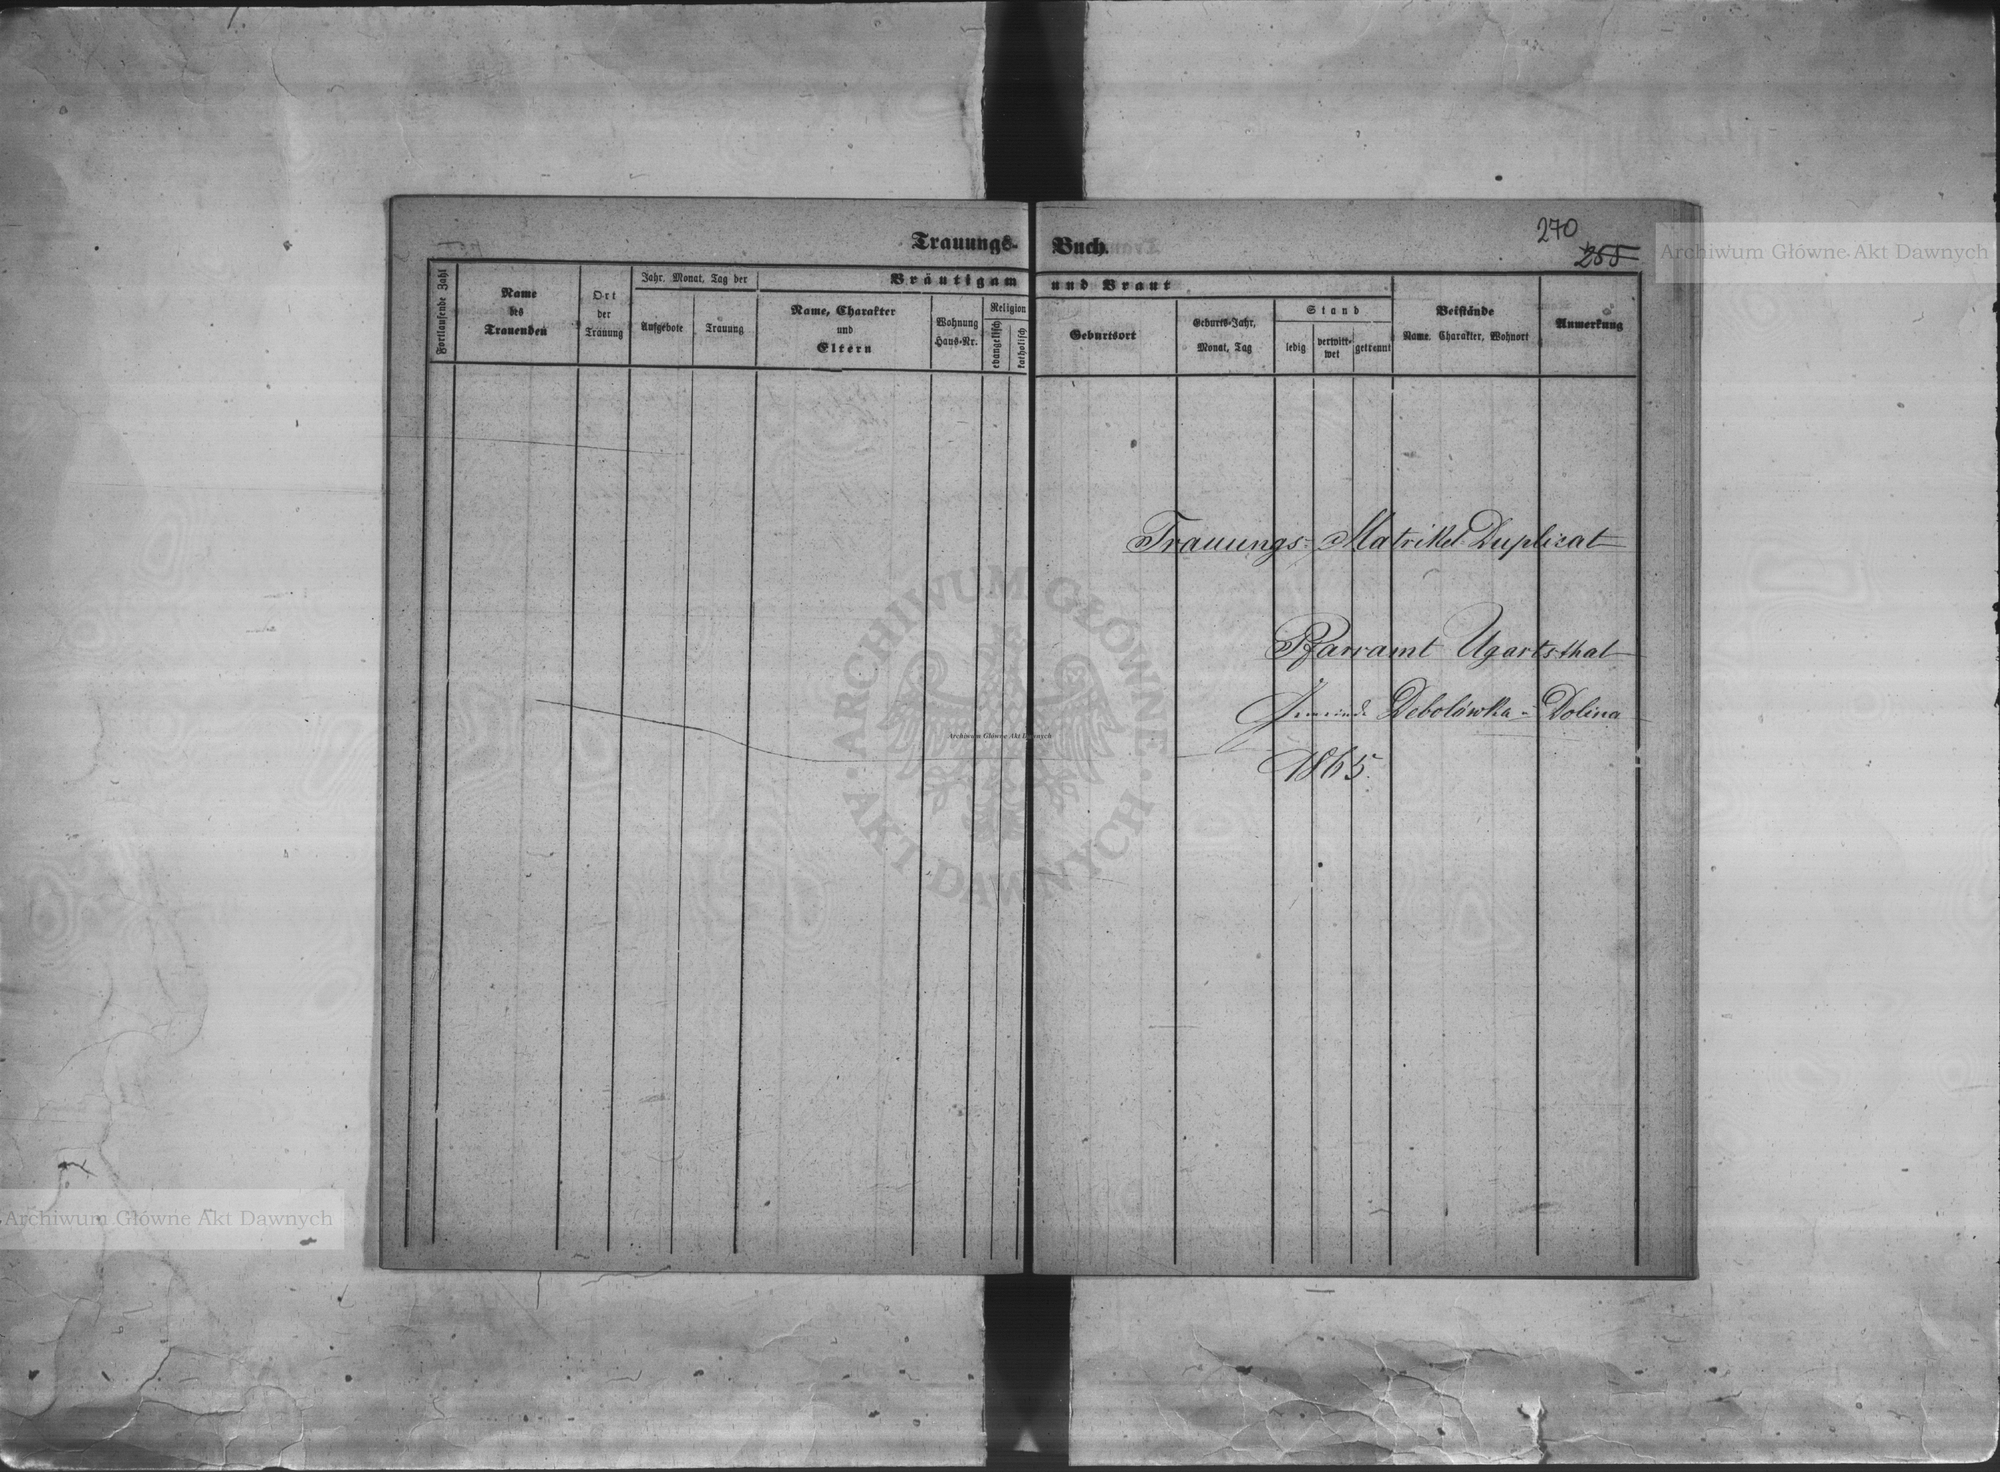 Trauungs-
Fortlaufende Zahl
Name
des
Trauenden
Ort
der
Trauung
Jahr, Monat, Tag der
Aufgebote
Trauung
Bräutigam
Name, Charakter
und
Eltern
Wohnung
Haus-Nr.
Religion
evangelisch
katholisch
Buch.
270
255
und Braut
Geburtsort
Geburts-Jahr,
Monat, Tag
Stand
ledig
verwitt-
wet
getrennt
Beistände
Name, Charakter, Wohnort
Anmerkung
Trauungs-Matrikel-Duplicat
Pfarramt Ugartsthal
Gemeinde Debolówka u Dolina
1865.
ARCHIWUM GŁÓWNE
AKT DAWNYCH
Archiwum Główne Akt Dawnych
Archiwum Główne Akt Dawnych
Archiwum Główne Akt Dawnych